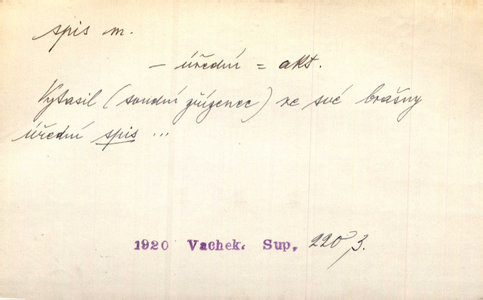 spis m.
– úřední = akt.
Vytasil (soudní zřízenec) ze své brašny
úřední spis ...
1920 Vachek. Sup. 220,3.